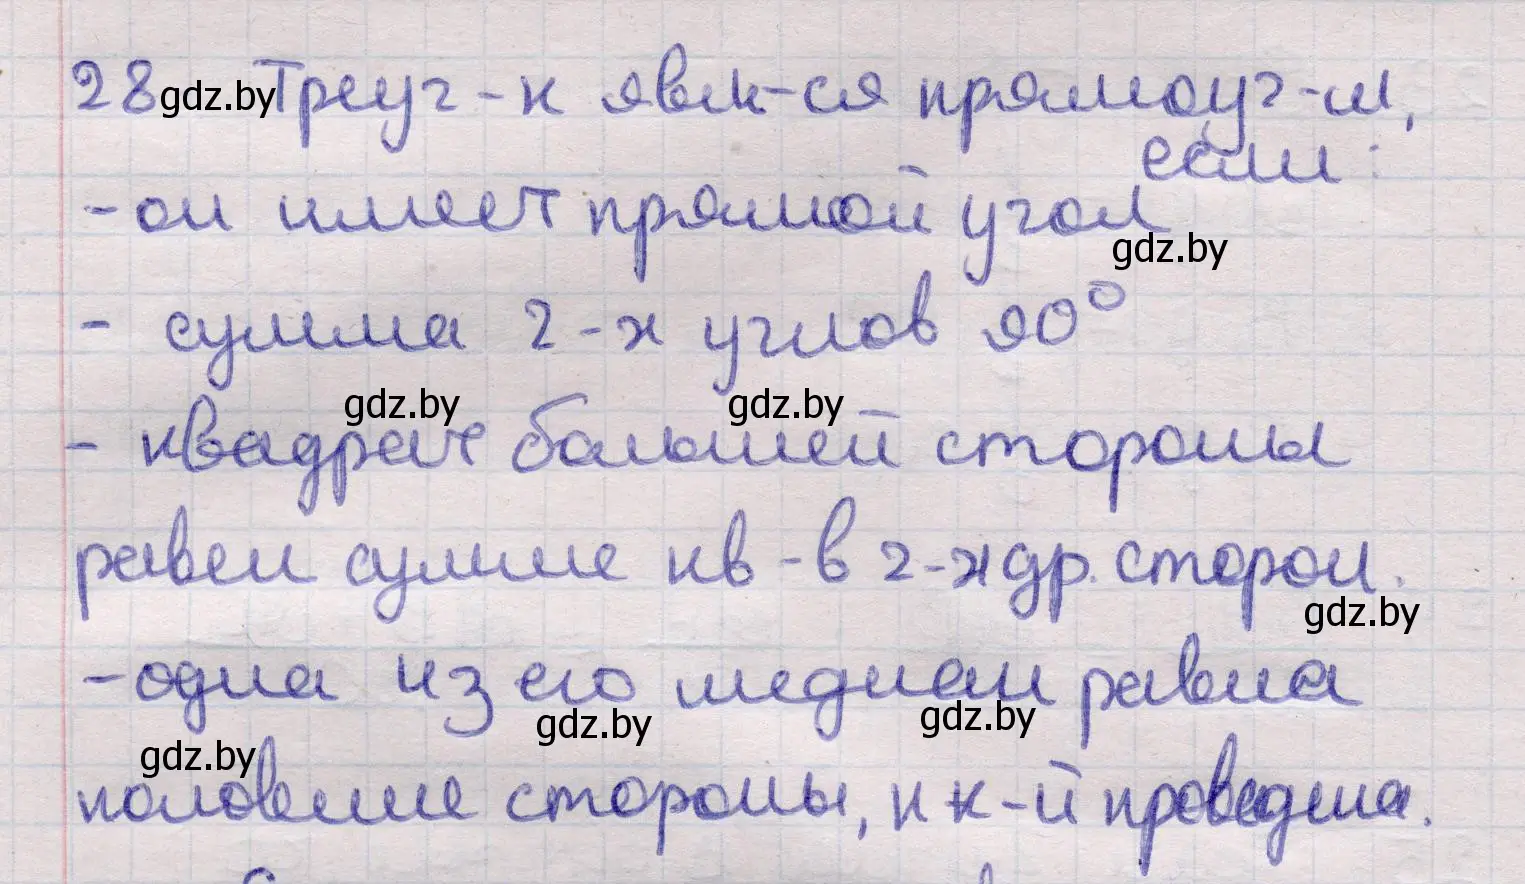 28 gdz.by Треуг-к явл-ся прямоуг-м,
если:
- он имеет прямой угол
gdz.by
- сумма 2-х углов 90°
gdz.by gdz.by
- квадрат большей стороны
равен сумме кв-в 2-х др. сторон.
gdz.by
- одна из его медиан равна
gdz.by gdz.by gdz.by
половине стороны, к к-й проведена.